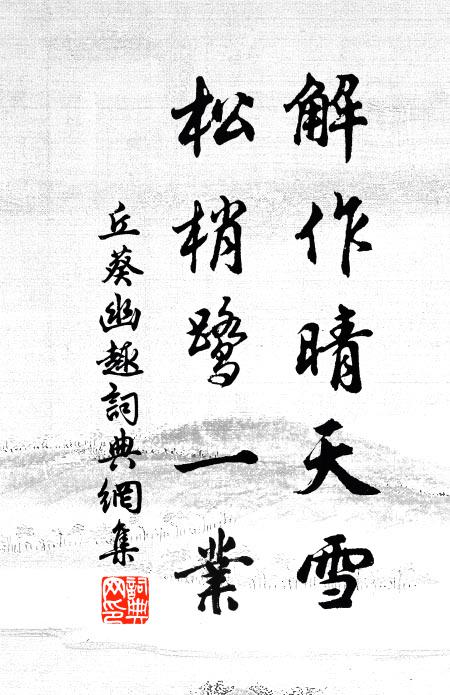 解作晴天雪
松梢鹭一業
丘葵幽趣詞典網集
詞典
网印